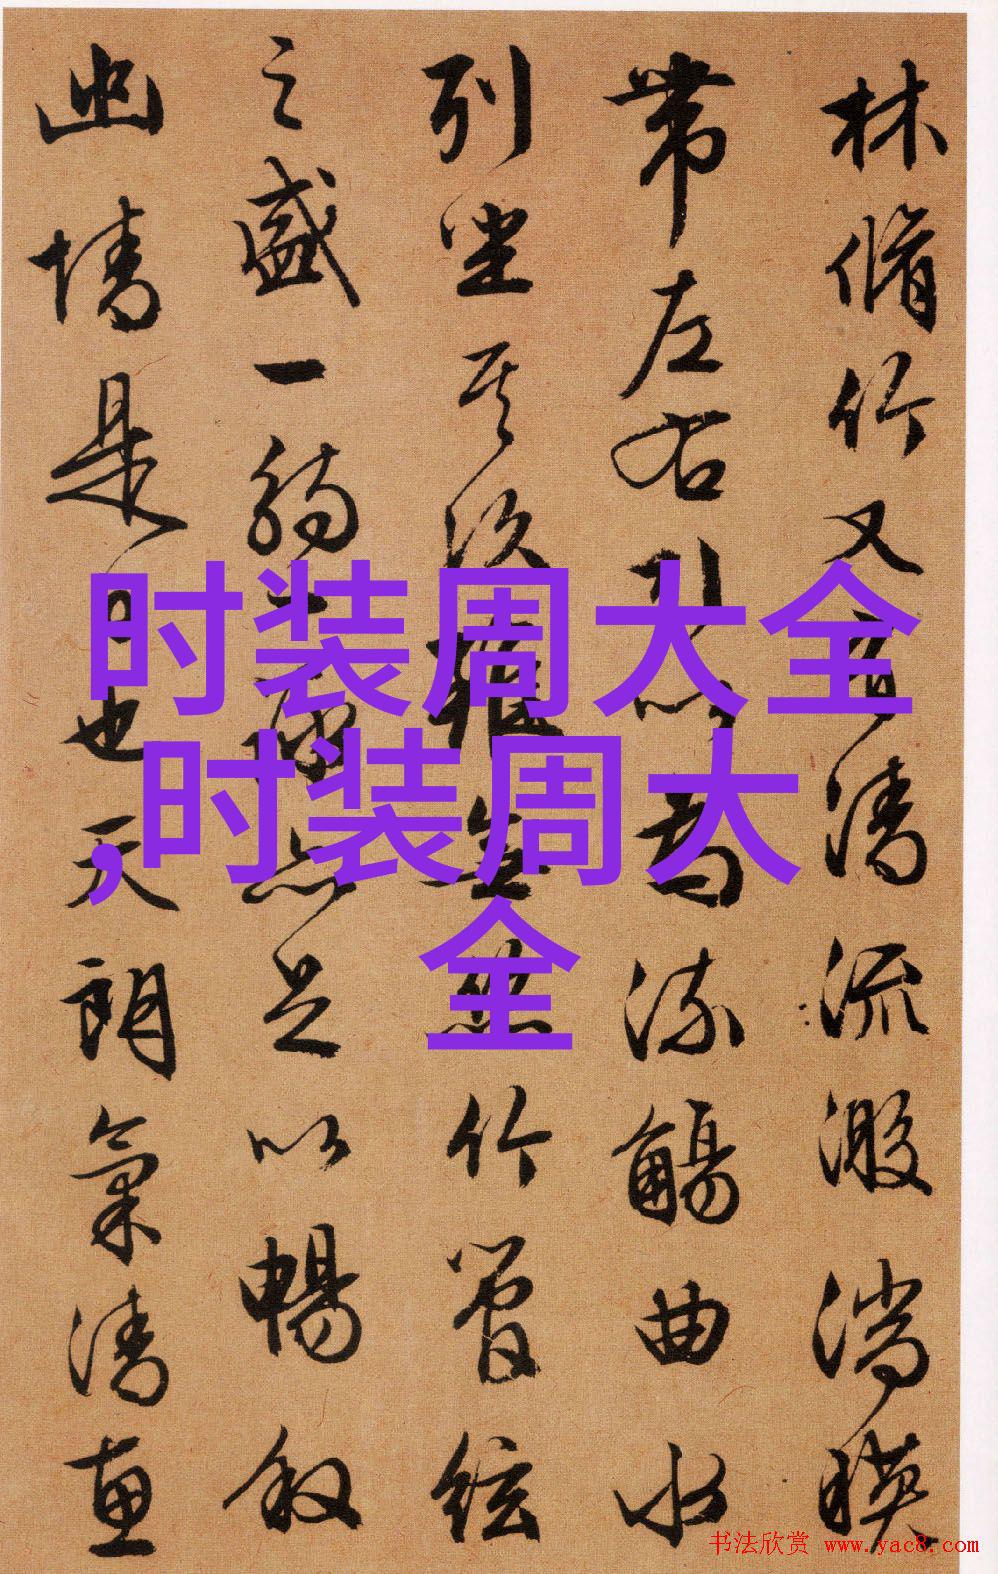 林脩竹又有清流激湍暎
带左右引以為流觴曲水
列坐其次雖無絲竹管弦
之盛一觴一詠亦足以暢叙
幽情是日也天朗氣清惠
时装周大全
,时装周大
全
书法欣赏 www.yac8.com